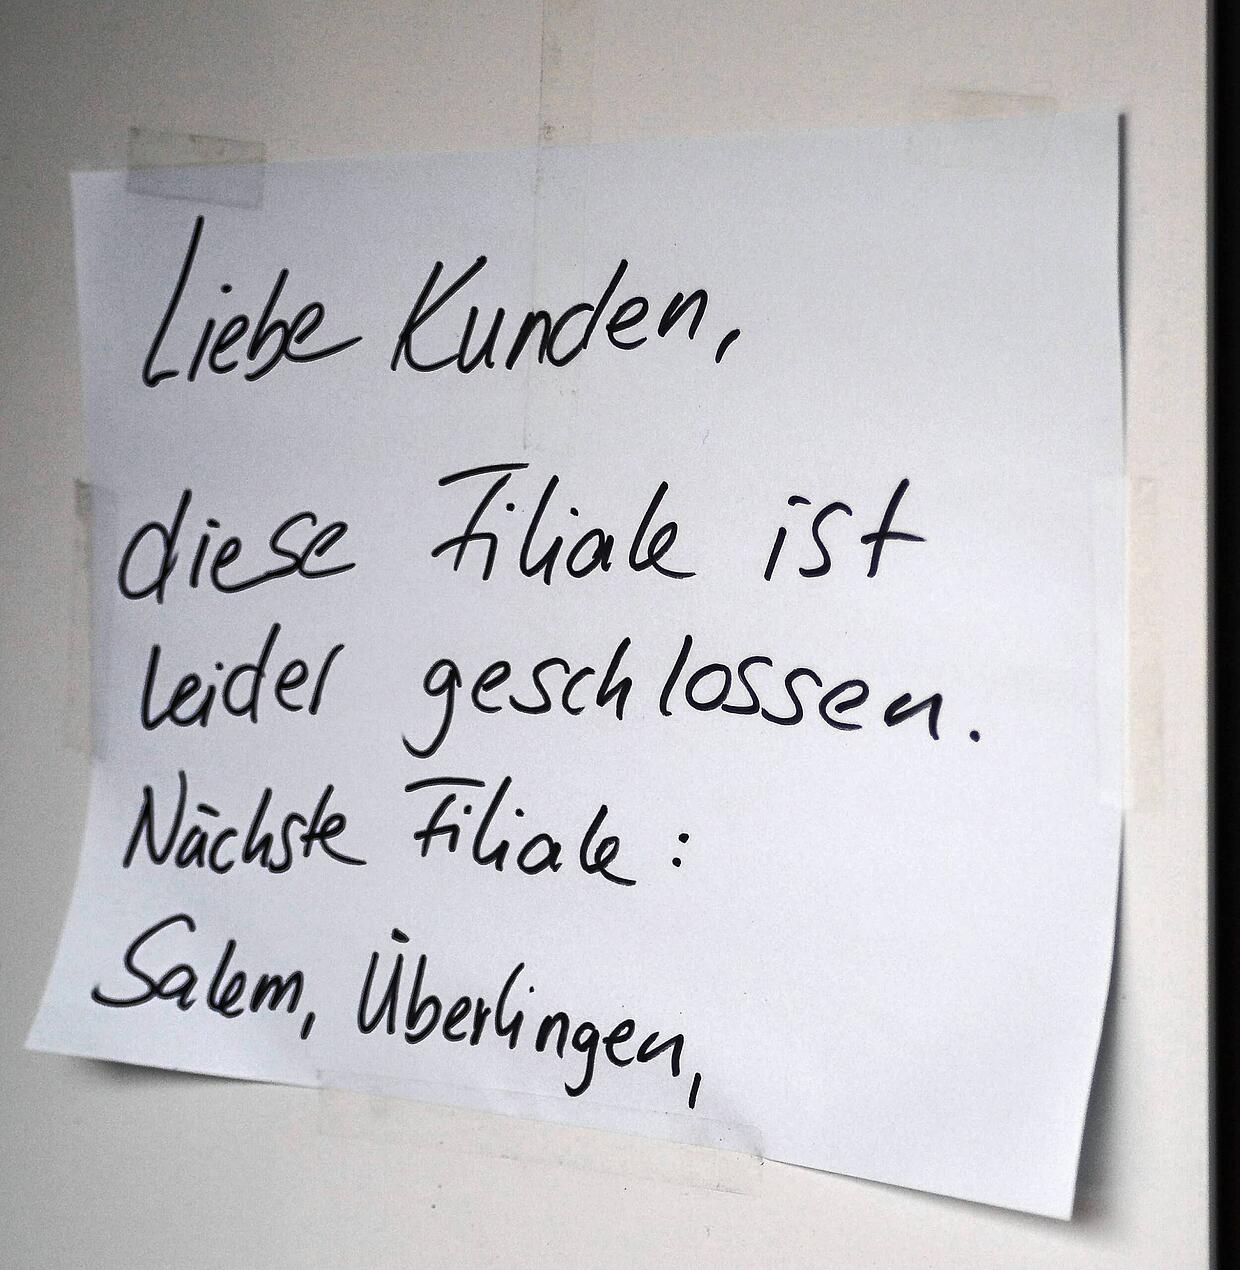 Liebe Kunden,
diese Filiale ist
leider geschlossen.
Nächste Filiale:
Salem, Überlingen,